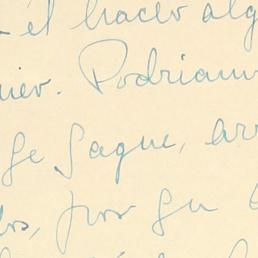 - él hacer alg
nier. Podriamo
ge Gague, arr
os, por su